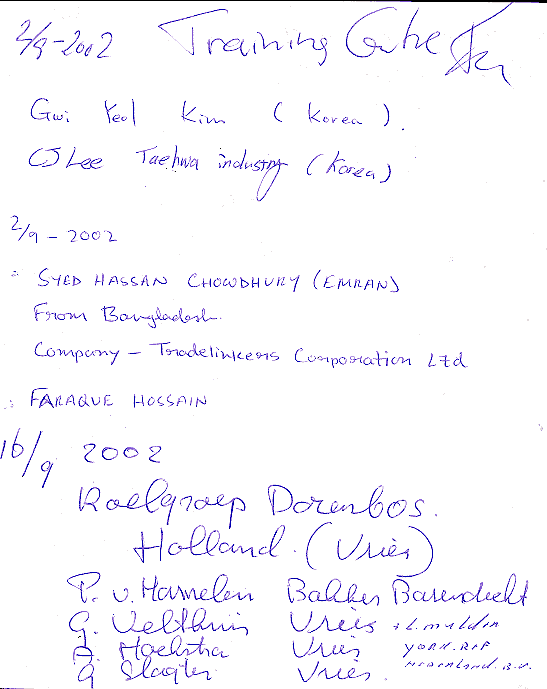 2/9-2002 Training Centre
Gwi Yeol Kim (Korea).
CJ Lee Taehwa industry (Korea)
2/9 - 2002
SYED HASSAN CHOWDHURY (EMRAN)
From Bangladesh.
Company - Tradelinkers Corporation Ltd
FARAQUE HOSSAIN
16/9 2002
Koelgroep Dorenbos.
Holland. (Vries)
P. v. Hamelen Bakker Barendrecht
G. Velthuis Vries
A. Hoekstra Vries YORK. REF
G Slagter Vries. NEDERLAND. B.V.